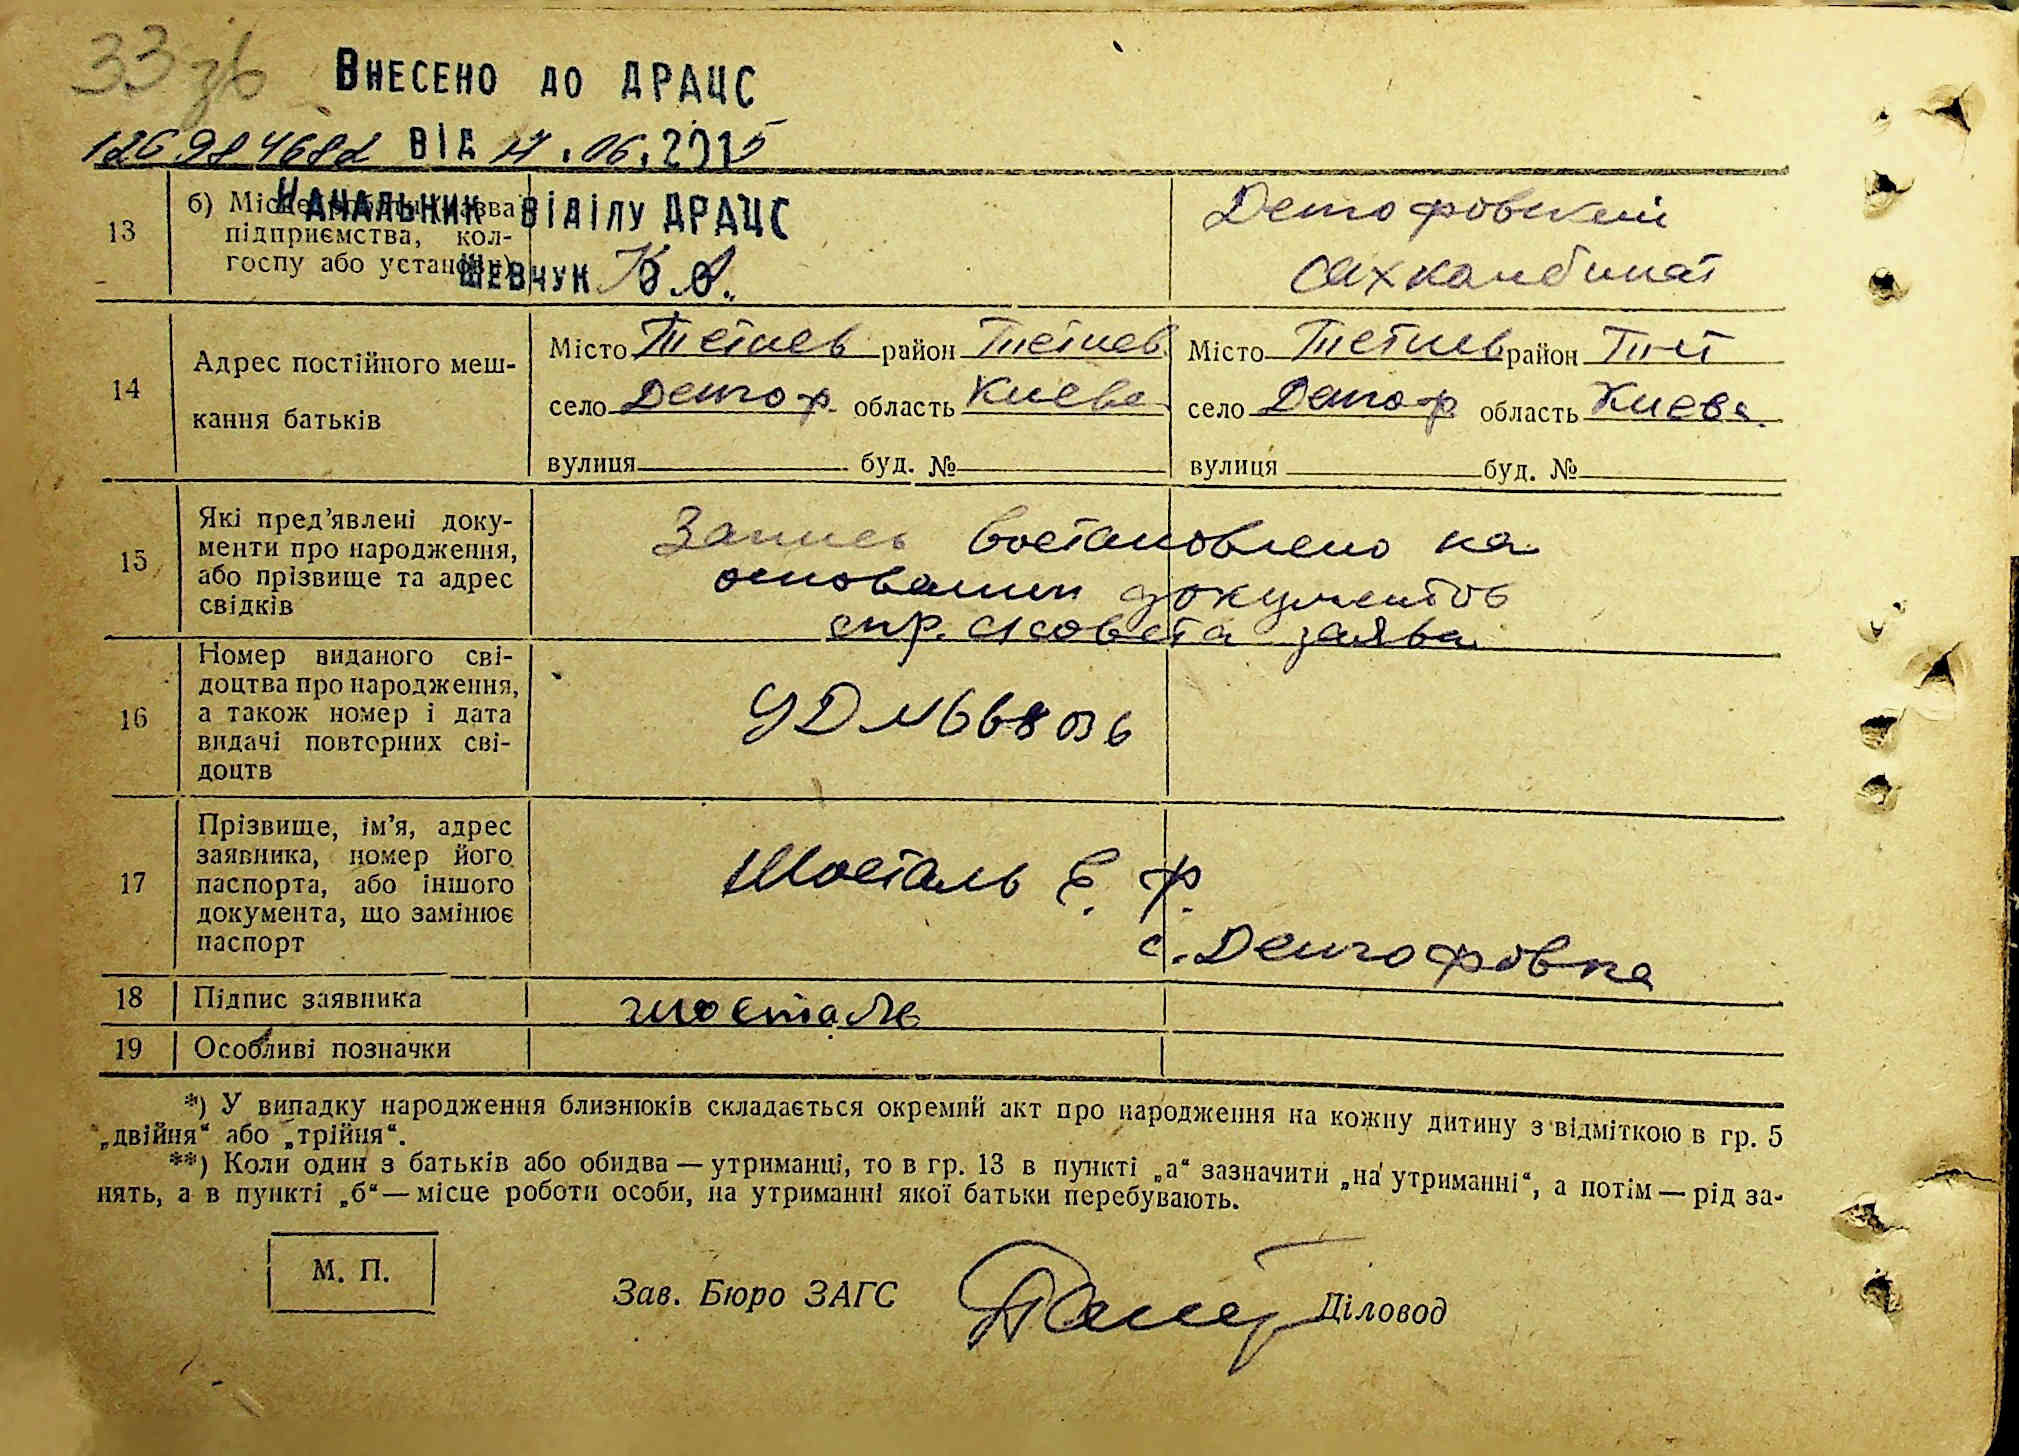 33 зв
Внесено до ДРАЦС
126984682 від 17.06.2015
Начальник відділу ДРАЦС
Шевчук
13 б) Місце роботи (назва підприємства, колгоспу або установи)
Дениофовский
сахкомбинат
14 Адрес постійного меш-
кання батьків
Місто Тетиев район Тетиев Місто Тетиев район Тет
село Денгоф. область Киевс село Денгоф область Киевс.
вулиця буд. № вулиця буд. №
15 Які пред’явлені доку-
менти про народження,
або прізвище та адрес
свідків
Запись востановлено на
основании документов
спр. с/совета заява
16 Номер виданого сві-
доцтва про народження,
а також номер і дата
видачі повторних сві-
доцтв
УД №668036
17 Прізвище, ім’я, адрес
заявника, номер його
паспорта, або іншого
документа, що замінює
паспорт
Шосталь Е. Ф.
с. Денгофовка
18 Підпис заявника шосталь
19 Особливі позначки
*) У випадку народження близнюків складається окремий акт про народження на кожну дитину з відміткою в гр. 5
„двійня“ або „трійня“.
**) Коли один з батьків або обидва — утриманці, то в гр. 13 в пункті „а“ зазначити „на утриманні“, а потім — рід за-
нять, а в пункті „б“ — місце роботи особи, на утриманні якої батьки перебувають.
М. П.
Зав. Бюро ЗАГС Діловод